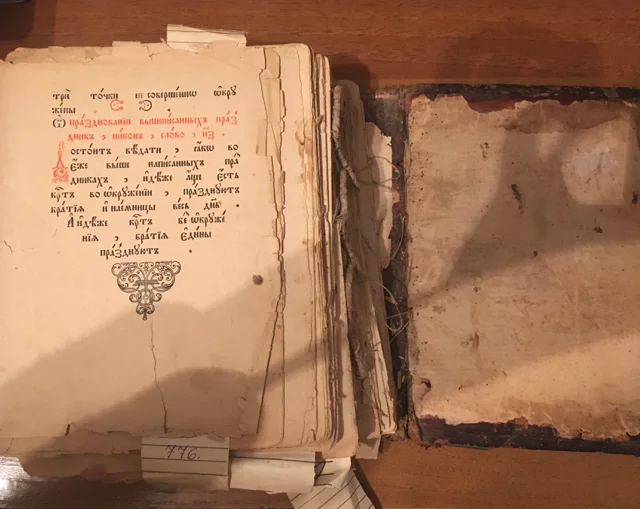 трѝ то́чки не совершенно ѡ҆кру
жены
Ѿ пра́зднованїи вышписанныхъ пра́з
дникъ , ни́кон , сло́во , н҃з .
Досто́итъ вѣ́дати , ꙗ҆́кѡ во
є҆́же выше написанныхъ пра́
дникахъ , и҆дѣ́же а҆́ще є҆́сть
кр҃тъ во ѡ҆кружении , пра́зднуютъ
бра́тїѧ и҆ нає́мницы весь дн҃ь .
А҆ и҆дѣ́же кр҃тъ бе ѡ҆круже́
нїѧ , бра́тїѧ є҆ди́ны
пра́зднуютъ .
776.